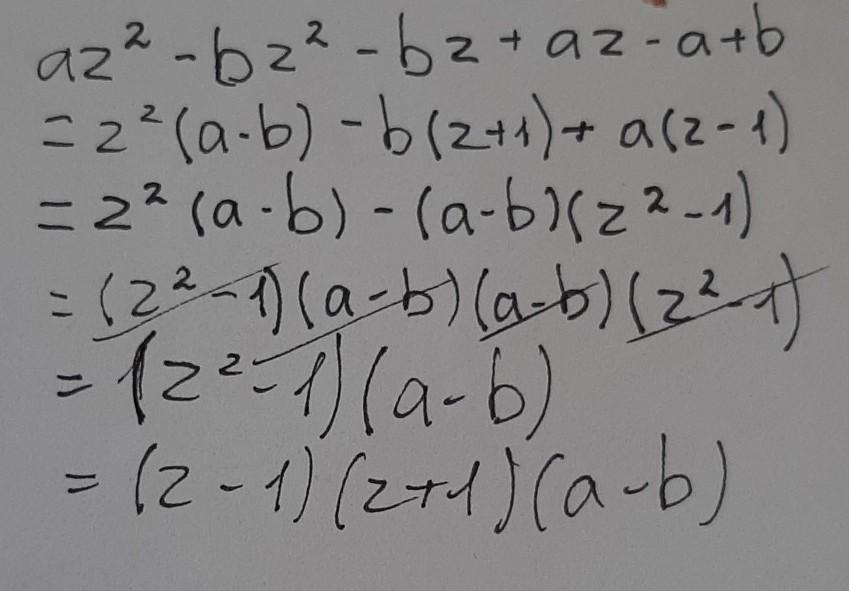 az² - bz² - bz + az - a + b
= z² (a - b) - b(z+1) + a(z - 1)
= z² (a - b) - (a - b)(z² - 1)
= (z² - 1)(a - b)(a - b)(z² - 1)
= (z² - 1)(a - b)
= (z - 1)(z + 1)(a - b)